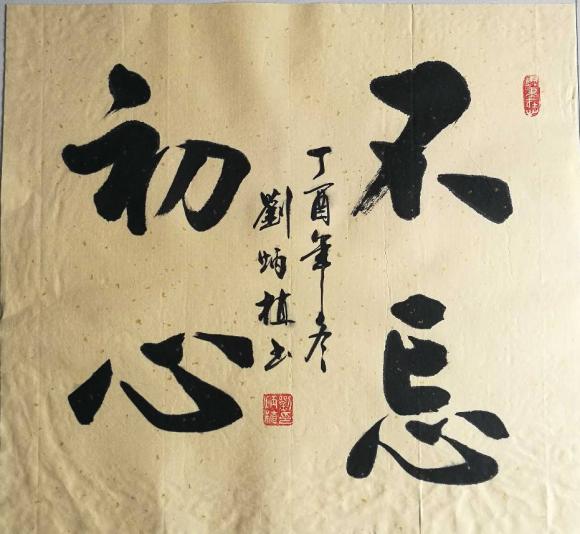 不忘
初心
丁酉年冬
劉炳植书